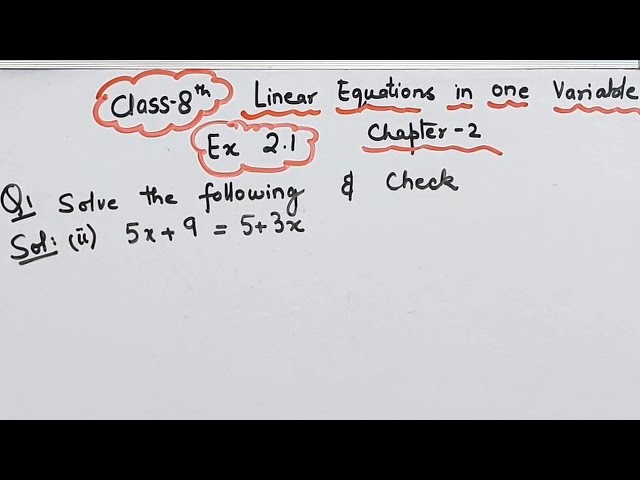 Class-8th Linear Equations in one Variable
Ex 2.1 Chapter-2
Q1 Solve the following & Check
Sol: (ii) 5x + 9 = 5+3x